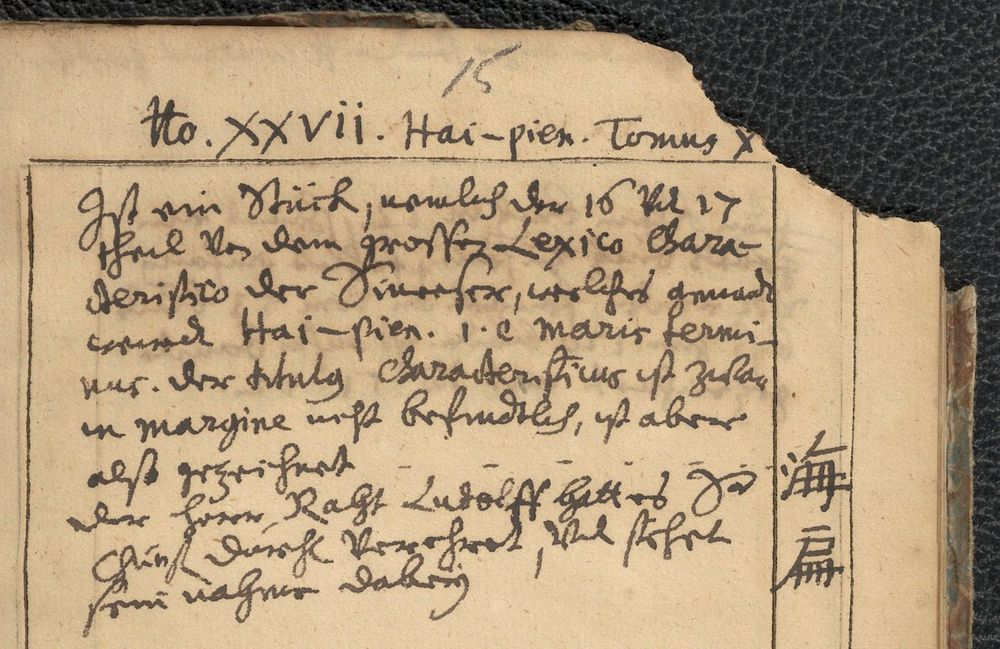 15
No. XXVII. Hai-pien. Tomus X
Ist ein Stück, nemlich der 16 Vnd 17
theil Von dem grossen Lexico Chara-
cteristico der Sineeser, welches genandt
wirdt Hai-pien. i.e maris termi-
nus. der titulus Characteristicus ist zwar
in margine nicht befindtlich, ist aber
also gezeichnet
der herr Raht Ludolff hatt es
durchl Verehret, Vnd stehet
sein nahme dabeÿ
海
扁